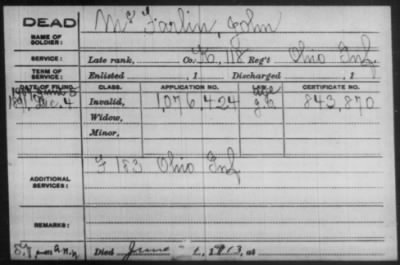 DEAD
NAME OF SOLDIER:
McFarlin, John
SERVICE:
Late rank, Co. K, 118 Reg't Ohio Inf.
TERM OF SERVICE:
Enlisted , 1 Discharged , 1
DATE OF FILING. CLASS. APPLICATION NO. LAWS. CERTIFICATE NO.
1891, Dec. 4 Invalid, 1,076,424 843,870
Widow,
Minor,
ADDITIONAL SERVICES:
F 183 Ohio Inf
REMARKS:
Died June 1, 1913, at